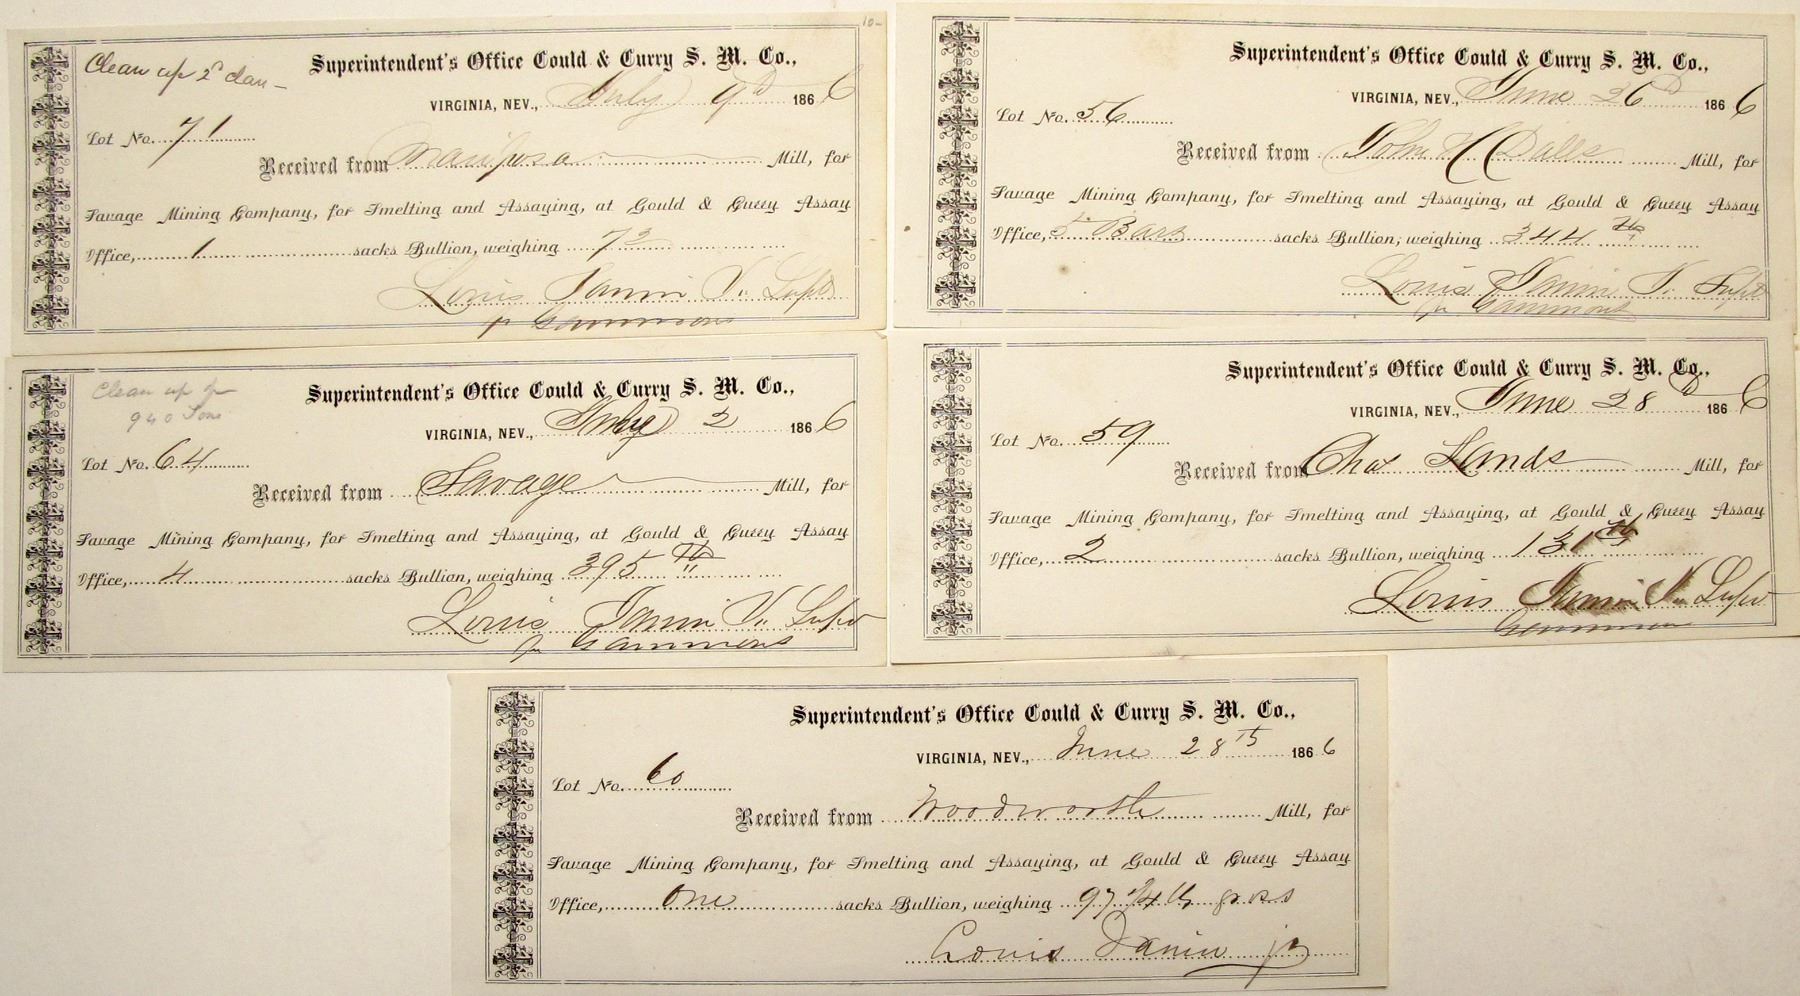 10-
Clean up 2d clan –
Superintendent's Office Gould & Curry S. M. Co.,
VIRGINIA, NEV., July 9th 1866
Lot No. 71
Received from Mariposa Mill, for
Savage Mining Company, for Smelting and Assaying, at Gould & Curry Assay
Office, 1 sacks Bullion, weighing 73
Louis Janin Jr. Supt
pr Gammons
Superintendent's Office Gould & Curry S. M. Co.,
VIRGINIA, NEV., June 26th 1866
Lot No. 56
Received from John H Dalls Mill, for
Savage Mining Company, for Smelting and Assaying, at Gould & Curry Assay
Office, 5 Bars sacks Bullion, weighing 344 lb
Louis Janin Jr Supt
pr Gammons
Clean up for
940 Tons
Superintendent's Office Gould & Curry S. M. Co.,
VIRGINIA, NEV., July 2 1866
Lot No. 64
Received from Savage Mill, for
Savage Mining Company, for Smelting and Assaying, at Gould & Curry Assay
Office, 4 sacks Bullion, weighing 395 lb
Louis Janin Jr. Supt
pr Gammons
Superintendent's Office Gould & Curry S. M. Co.,
VIRGINIA, NEV., June 28th 1866
Lot No. 59
Received from Chas Lands Mill, for
Savage Mining Company, for Smelting and Assaying, at Gould & Curry Assay
Office, 2 sacks Bullion, weighing 131 lb
Louis Janin Jr Supt
Gammons
Superintendent's Office Gould & Curry S. M. Co.,
VIRGINIA, NEV., June 28th 1866
Lot No. 60
Received from Woodworth Mill, for
Savage Mining Company, for Smelting and Assaying, at Gould & Curry Assay
Office, One sacks Bullion, weighing 97 lb gross
Louis Janin jr